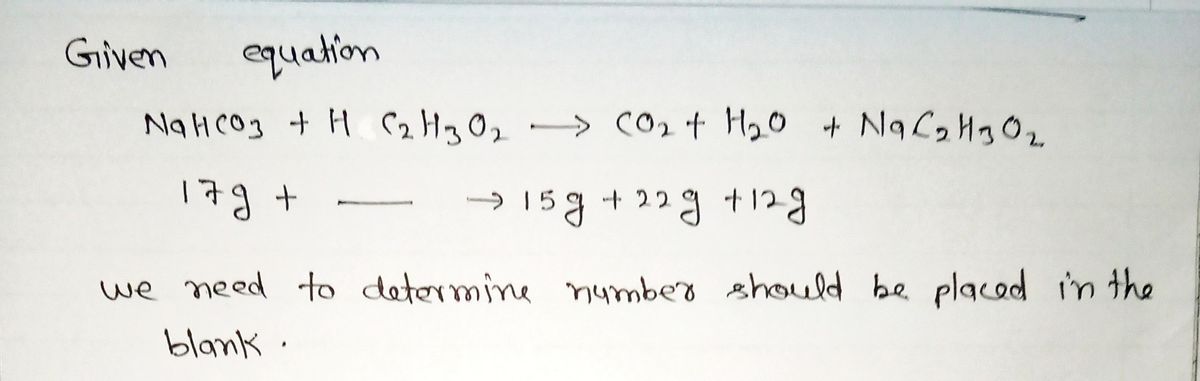 Given equation
NaHCO₃ + H C₂H₃O₂ → CO₂ + H₂O + NaC₂H₃O₂
17g + — → 15g + 22g + 12g
we need to determine number should be placed in the
blank .